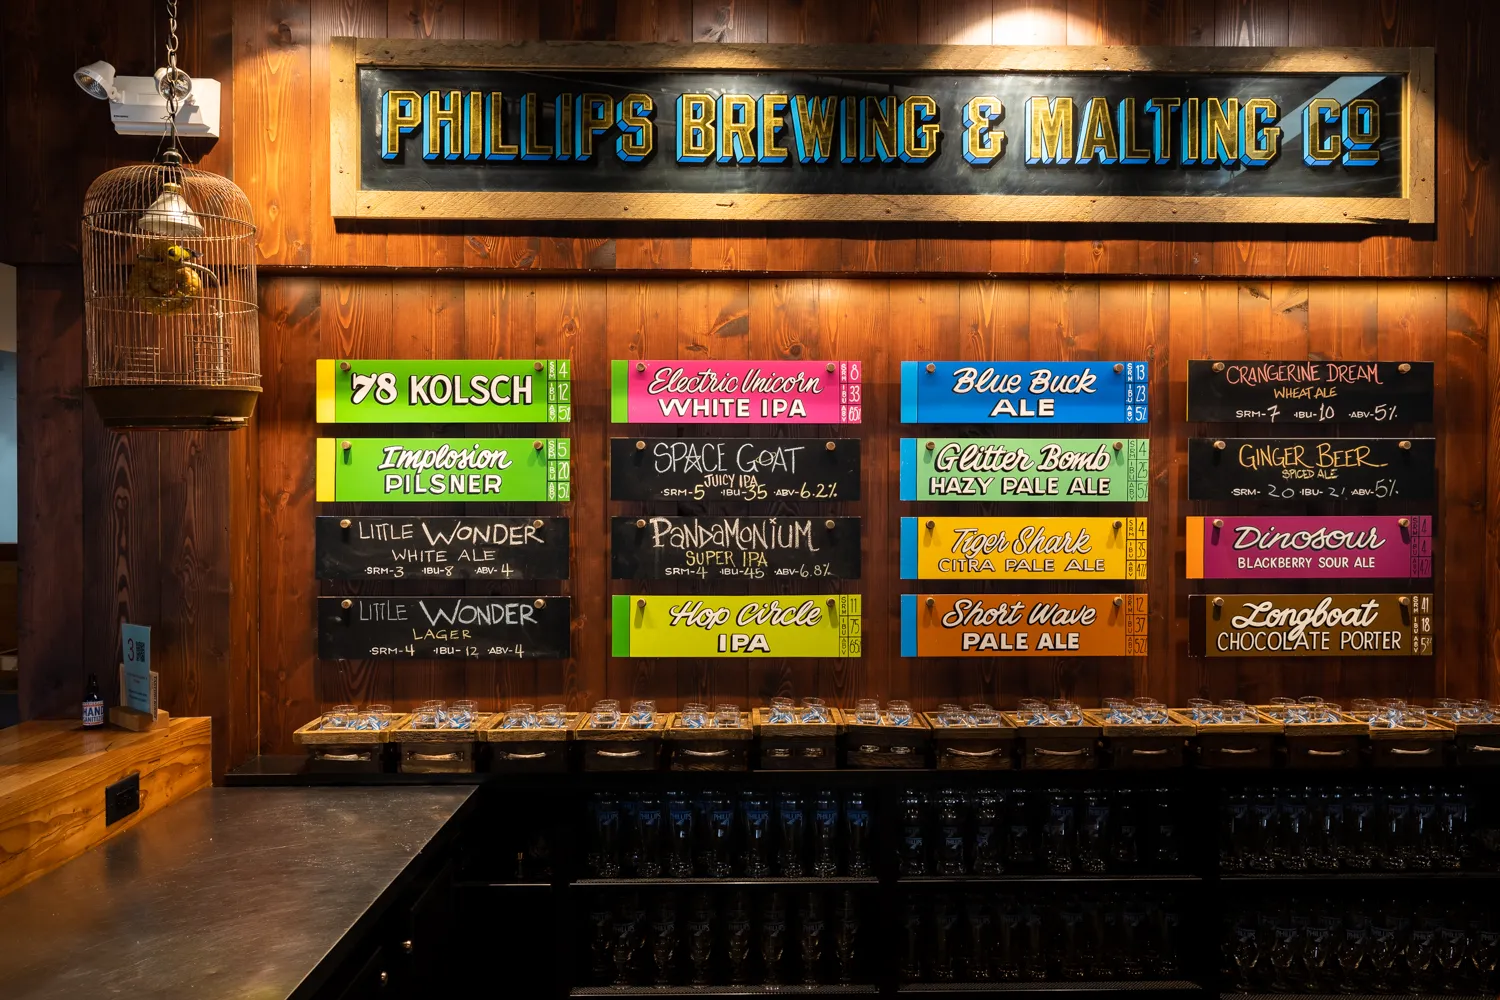 PHILLIPS BREWING & MALTING CO
78 KOLSCH
SRM 4
IBU 12
ABV 5%
Implosion
PILSNER
SRM 5
IBU 20
ABV 5%
LITTLE WONDER
WHITE ALE
·SRM-3 ·IBU-8 ·ABV-4
LITTLE WONDER
LAGER
·SRM-4 ·IBU-12 ·ABV-4
Electric Unicorn
WHITE IPA
SRM 8
IBU 33
ABV
SPACE GOAT
JUICY IPA
·SRM-5 ·IBU-35 ·ABV-6.2%
PANDAMONIUM
SUPER IPA
SRM-4 ·IBU-45 ·ABV-6.8%
Hop Circle
IPA
SRM 11
IBU 75
ABV
Blue Buck
ALE
SRM 13
IBU 23
ABV 5%
Glitter Bomb
HAZY PALE ALE
SRM 4
IBU 25
ABV
Tiger Shark
CITRA PALE ALE
SRM 4
IBU 35
ABV
Short Wave
PALE ALE
SRM 12
IBU 37
ABV
CRANGERINE DREAM
WHEAT ALE
SRM-7 ·IBU-10 ·ABV-5%
GINGER BEER
SPICED ALE
·SRM-20 ·IBU-21 ·ABV-5%
Dinosour
BLACKBERRY SOUR ALE
Longboat
CHOCOLATE PORTER
SRM 41
IBU 18
ABV